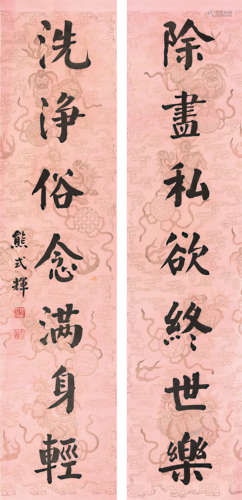 除盡私欲終世樂
洗淨俗念满身輕
熊式輝